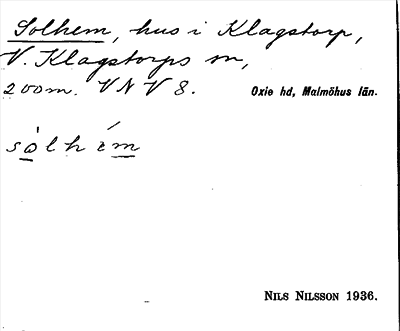 Solhem, hus i Klagstorp,
V. Klagstorps sn,
200 m. VNV 8.
Oxie hd, Malmöhus län.
sòlhém
NILS NILSSON 1936.